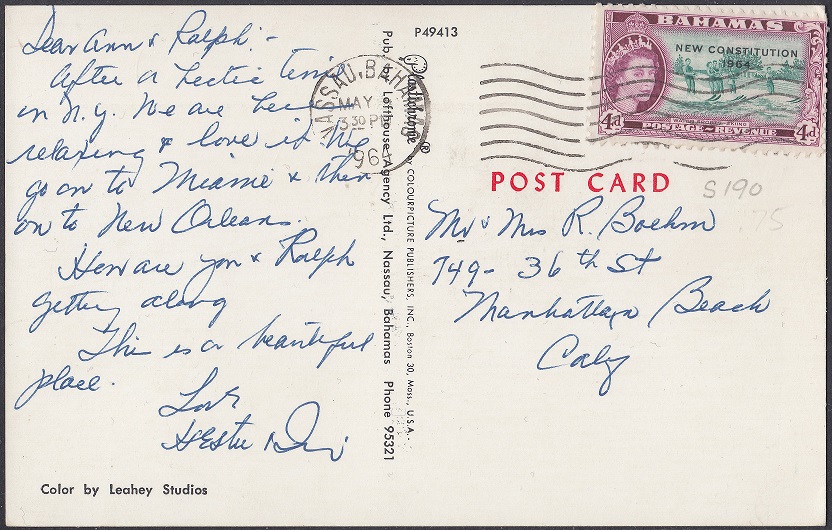 Dear Ann & Ralph: -
After a hectic time
in N.Y. We are here
relaxing & love it. We
go on to Miami & then
on to New Orleans.
How are you & Ralph
getting along
This is a beautiful
place.
Love
Color by Leahey Studios
P49413
Pub. by Lofthouse Agency Ltd., Nassau, Bahamas Phone 95321
Plastichrome ® by COLOURPICTURE PUBLISHERS, INC., Boston 30, Mass., U.S.A.
NASSAU, BAHAMAS
MAY
3 30 PM
196
BAHAMAS
NEW CONSTITUTION
1964
4d 4d
POSTAGE & REVENUE
POST CARD
S190
75
Mr & Mrs R. Boehm
749 - 36 th St
Manhattan Beach
Calif